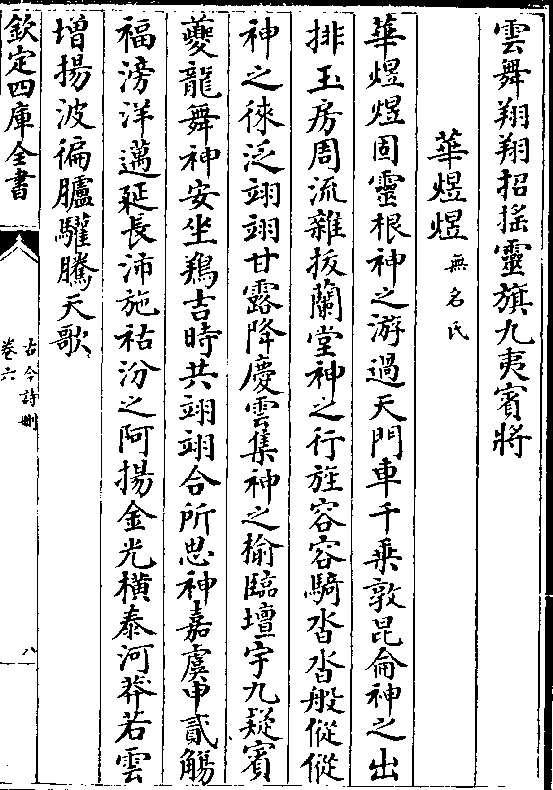 雲舞翔翔招搖靈旗九夷賓將
華煜煜無名氏
華煜煜固靈根神之游過天門車千乘敦昆侖神之出
排玉房周流雜拔蘭堂神之行旌容容騎沓沓般倊倊
神之徠泛翊翊甘露降慶雲集神之揄臨壇宇九疑賓
夔龍舞神安坐鶏吉時共翊翊合所思神嘉虞申貳觴
福滂洋邁延長沛施祜汾之阿揚金光橫泰河莽若雲
增揚波徧臚驩騰天歌
欽定四庫全書
古今詩刪
卷六
八